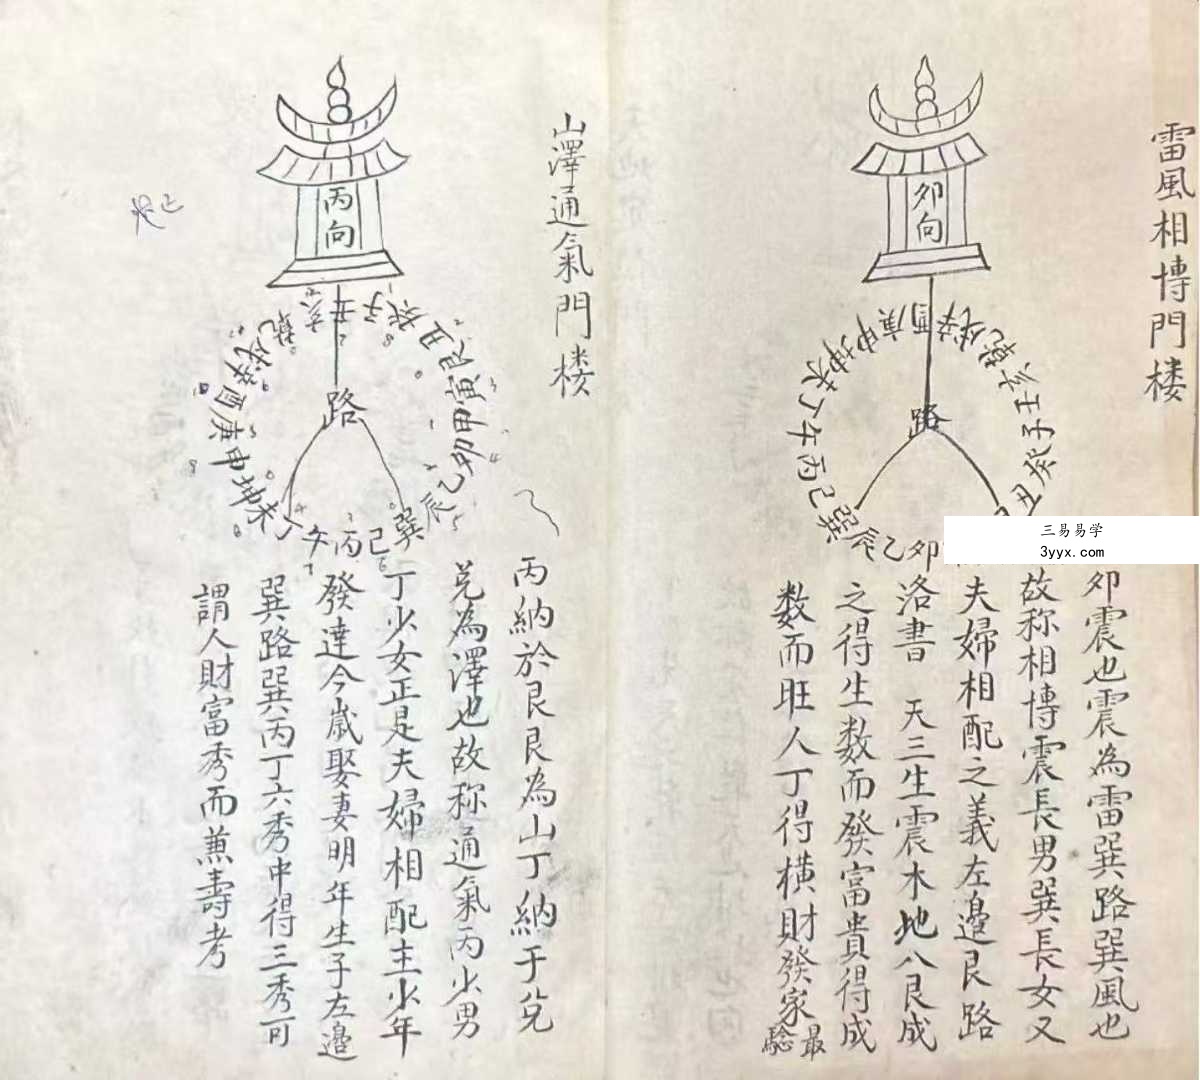 雷風相博門楼
卯向
路
庚申坤未丁午丙己巽辰乙卯
丑癸子壬亥乾戌辛酉
三易易学
3yyx.com
卯震也震為雷巽路巽風也
故称相博震長男巽長女又
夫婦相配之義左邉艮路
洛書 天三生震木地八艮成
之得生数而發富貴得成
数而旺人丁得横財發家最驗
山澤通氣門楼
丙向
路
壬子癸丑艮寅甲卯乙辰巽己丙午丁未坤申庚酉辛戌乾亥
丙納於艮艮為山丁納于兑
兑為澤也故称通氣丙少男
丁少女正是夫婦相配主少年
發達今歲娶妻明年生子左邉
巽路巽丙丁六秀中得三秀可
謂人財富秀而蕪壽考